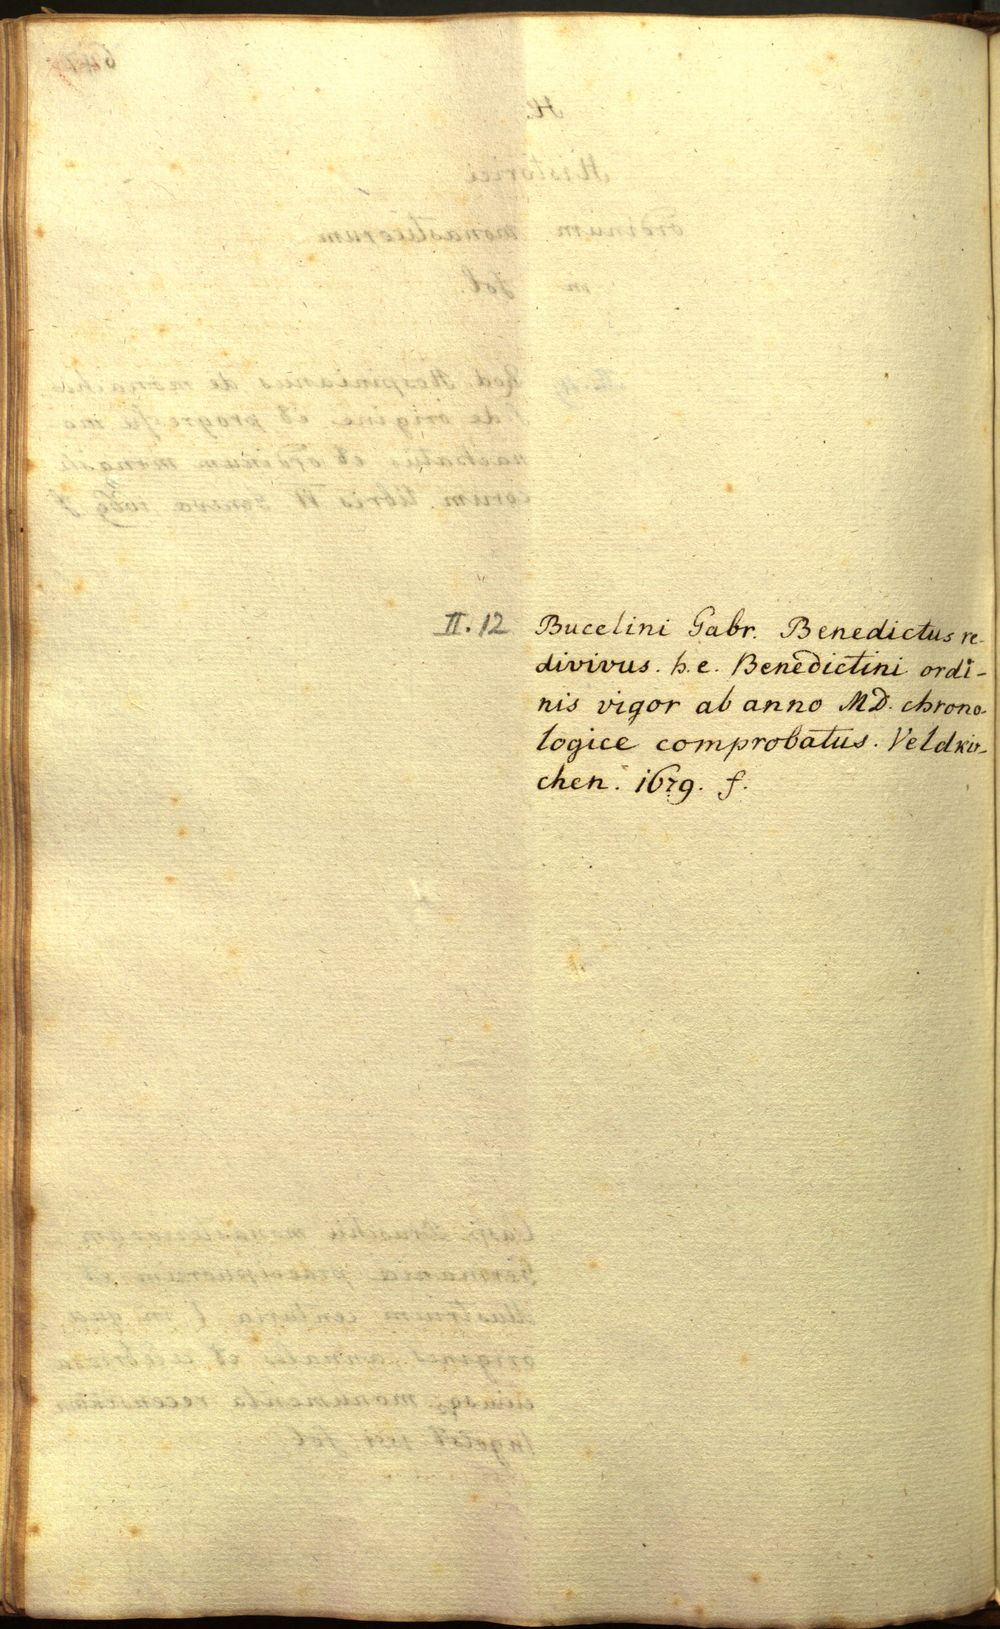 II. 12 Bucelini Gabr. Benedictus re-
divivus. h. e. Benedictini ordi-
nis vigor ab anno MD. chrono-
logice comprobatus. Veldkir-
chen. 1679. f.